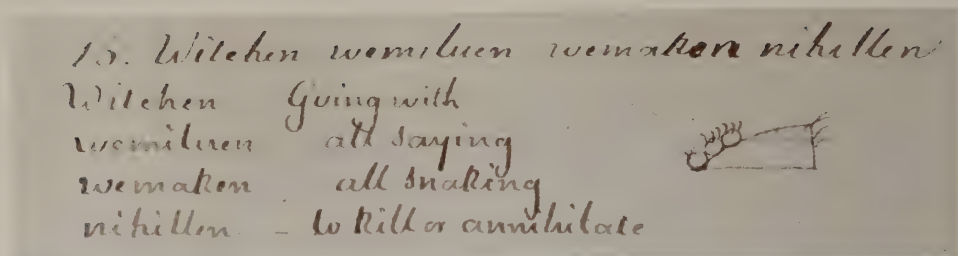 15. Witchen wemiluen wemaken nihillen
Witchen Going with
wemiluen all saying
wemaken all snaking
nihillen - to kill or annihilate